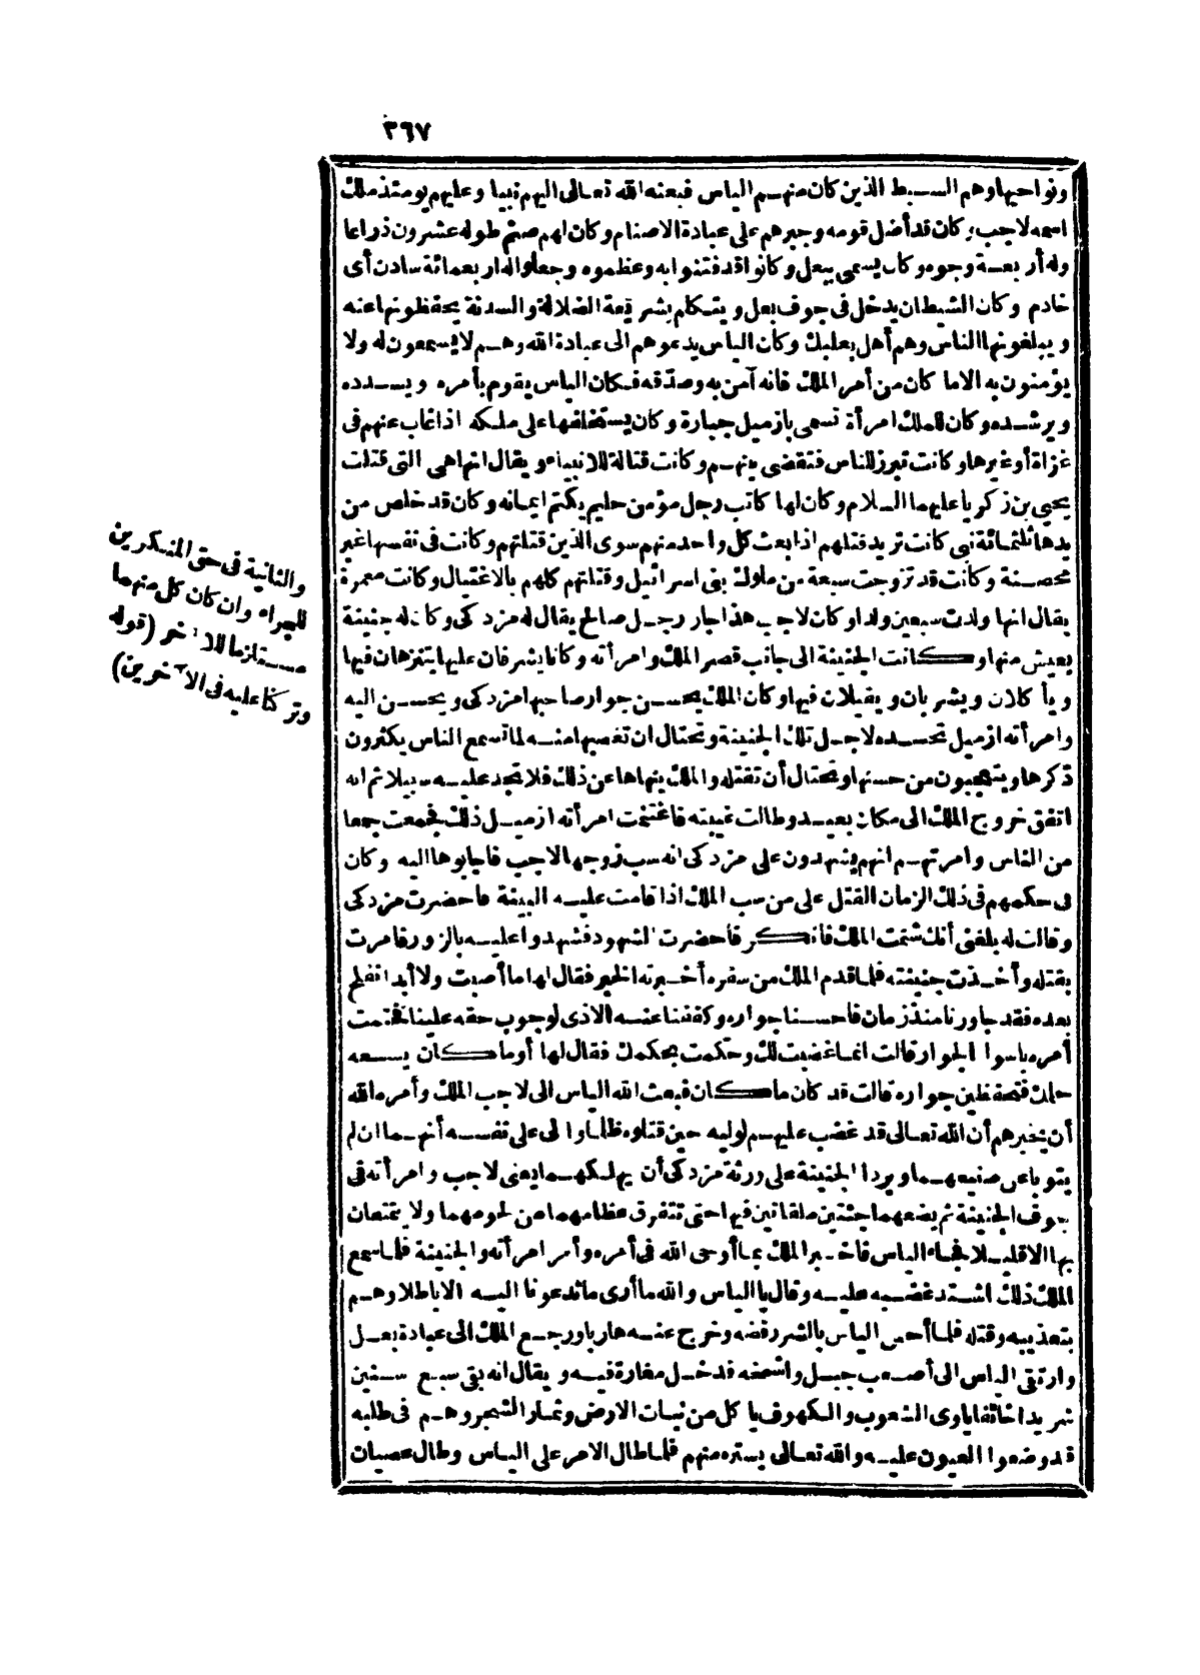 ٣٦٧
ونواحيها وهم السبط الذين كان منهم الياس فبعثه الله تعالى اليهم نبيا وعليهم يومئذ ملك
اسمه لاجب وكان قد أضل قومه وجبرهم على عبادة الاصنام وكان لهم صنم طوله عشرون ذراعا
وله أربعة وجوه وكان يسمى ببعل وكانوا قد فتنوا به وعظموه وجعلوا له أربعمائة سادن أى
خادم وكان الشيطان يدخل فى جوف بعل ويتكلم بشريعة الضلالة والسدنة يحفظونها عنه
ويبلغونها الناس وهم أهل بعلبك وكان الياس يدعوهم الى عبادة الله وهم لا يسمعون له ولا
يؤمنون به الا ما كان من أمر الملك فانه آمن به وصدقه فكان الياس يقوم بأمره ويسدده
ويرشده وكان للملك امرأة تسمى بازميل جبارة وكان يستخلفها على ملكه اذا غاب عنهم فى
غزاة أو غيرها وكانت تبرز للناس فتقضى بينهم وكانت قتالة للانبياء ويقال انها هى التى قتلت
يحيى بن زكريا عليهما السلام وكان لها كاتب رجل مؤمن حليم يكتم ايمانه وكان قد خلص من
يدها ثلثمائة نبى كانت تريد قتلهم اذا بعث كل واحد منهم سوى الذين قتلتهم وكانت فى نفسها غير
محصنة وكانت قد تزوجت سبعة من ملوك بنى اسرائيل وقتلتهم كلهم بالاغتيال وكانت معمرة
يقال انها ولدت سبعين ولدا وكان لاجب هذا جار رجل صالح يقال له مزدكى وكان له جنينة
يعيش منها وكانت الجنينة الى جانب قصر الملك وامرأته وكانا يشرفان عليها يتنزهان فيها
ويأكلان ويشربان ويقيلان فيها وكان الملك يحسن جوار صاحبها مزدكى ويحسن اليه
وامرأته ازميل تحسده لاجل تلك الجنينة وتحتال ان تغصبها منه لما تسمع الناس يكثرون
ذكرها ويتعجبون من حسنها وتحتال أن تقتله والملك ينهاها عن ذلك فلا تجد عليه سبيلا ثم انه
اتفق خروج الملك الى مكان بعيد وطالت غيبته فاغتنمت امرأته ازميل ذلك فجمعت جمعا
من الناس وامرتهم انهم يشهدون على مزدكى انه سب زوجها لاجب فاجابوها اليه وكان
فى حكمهم فى ذلك الزمان القتل على من سب الملك اذا قامت عليه البينة فاحضرت مزدكى
وقالت له بلغنى أنك شتمت الملك فانكر فاحضرت الشهود فشهدوا عليه بالزور فامرت
بقتله وأخذت جنينته فلما قدم الملك من سفره أخبرته الخبر فقال لها ما أصبت ولا أبدا نفلح
بعده فقد جاورنا منذ زمان فاحسنا جواره وكففنا عنه الاذى لوجوب حقه علينا فختمت
أمره باسوا الجوار قالت انما غضبت لك وحكمت بحكمك فقال لها أو ما كان يسعه
حلمك فتحفظين جواره قالت قد كان ما كان فبعث الله الياس الى لاجب الملك وأمره الله
أن يخبرهم أن الله تعالى قد غضب عليهم لوليه حين قتلوه ظلما وآلى على نفسه أنهما ان لم
يتوبا عن صنيعهما ويردا الجنينة على ورثة مزدكى أن يهلكهما يعنى لاجب وامرأته فى
جوف الجنينة ثم يضعهما جثتين ملقاتين فيها حتى تتفرق عظامهما من لحومهما ولا يتمتعان
بها الا قليلا فجاء الياس فاخبر الملك بما أوحى الله فى أمره وأمر امرأته والجنينة فلما سمع
الملك ذلك اشتد غضبه عليه وقال يا الياس والله ما أرى ما تدعونا اليه الا باطلا وهم
بتعذيبه وقتله فلما أحس الياس بالشر رفضه وخرج عنه هاربا ورجع الملك الى عبادة بعل
وارتقى الياس الى أصعب جبل واشمخه فدخل مغارة فيه ويقال انه بقى سبع سنين
شريدا خائفا يأوى الشعوب والكهوف يا كل من نبات الارض وثمار الشجر وهم فى طلبه
قد وضعوا العيون عليه والله تعالى يستره منهم فلما طال الامر على الياس وطال عصيان
والثانية فى حق المنكرين
للجزاء وان كان كل منهما
مستلزما للآخر (قوله
وتركنا عليه فى الآخرين)